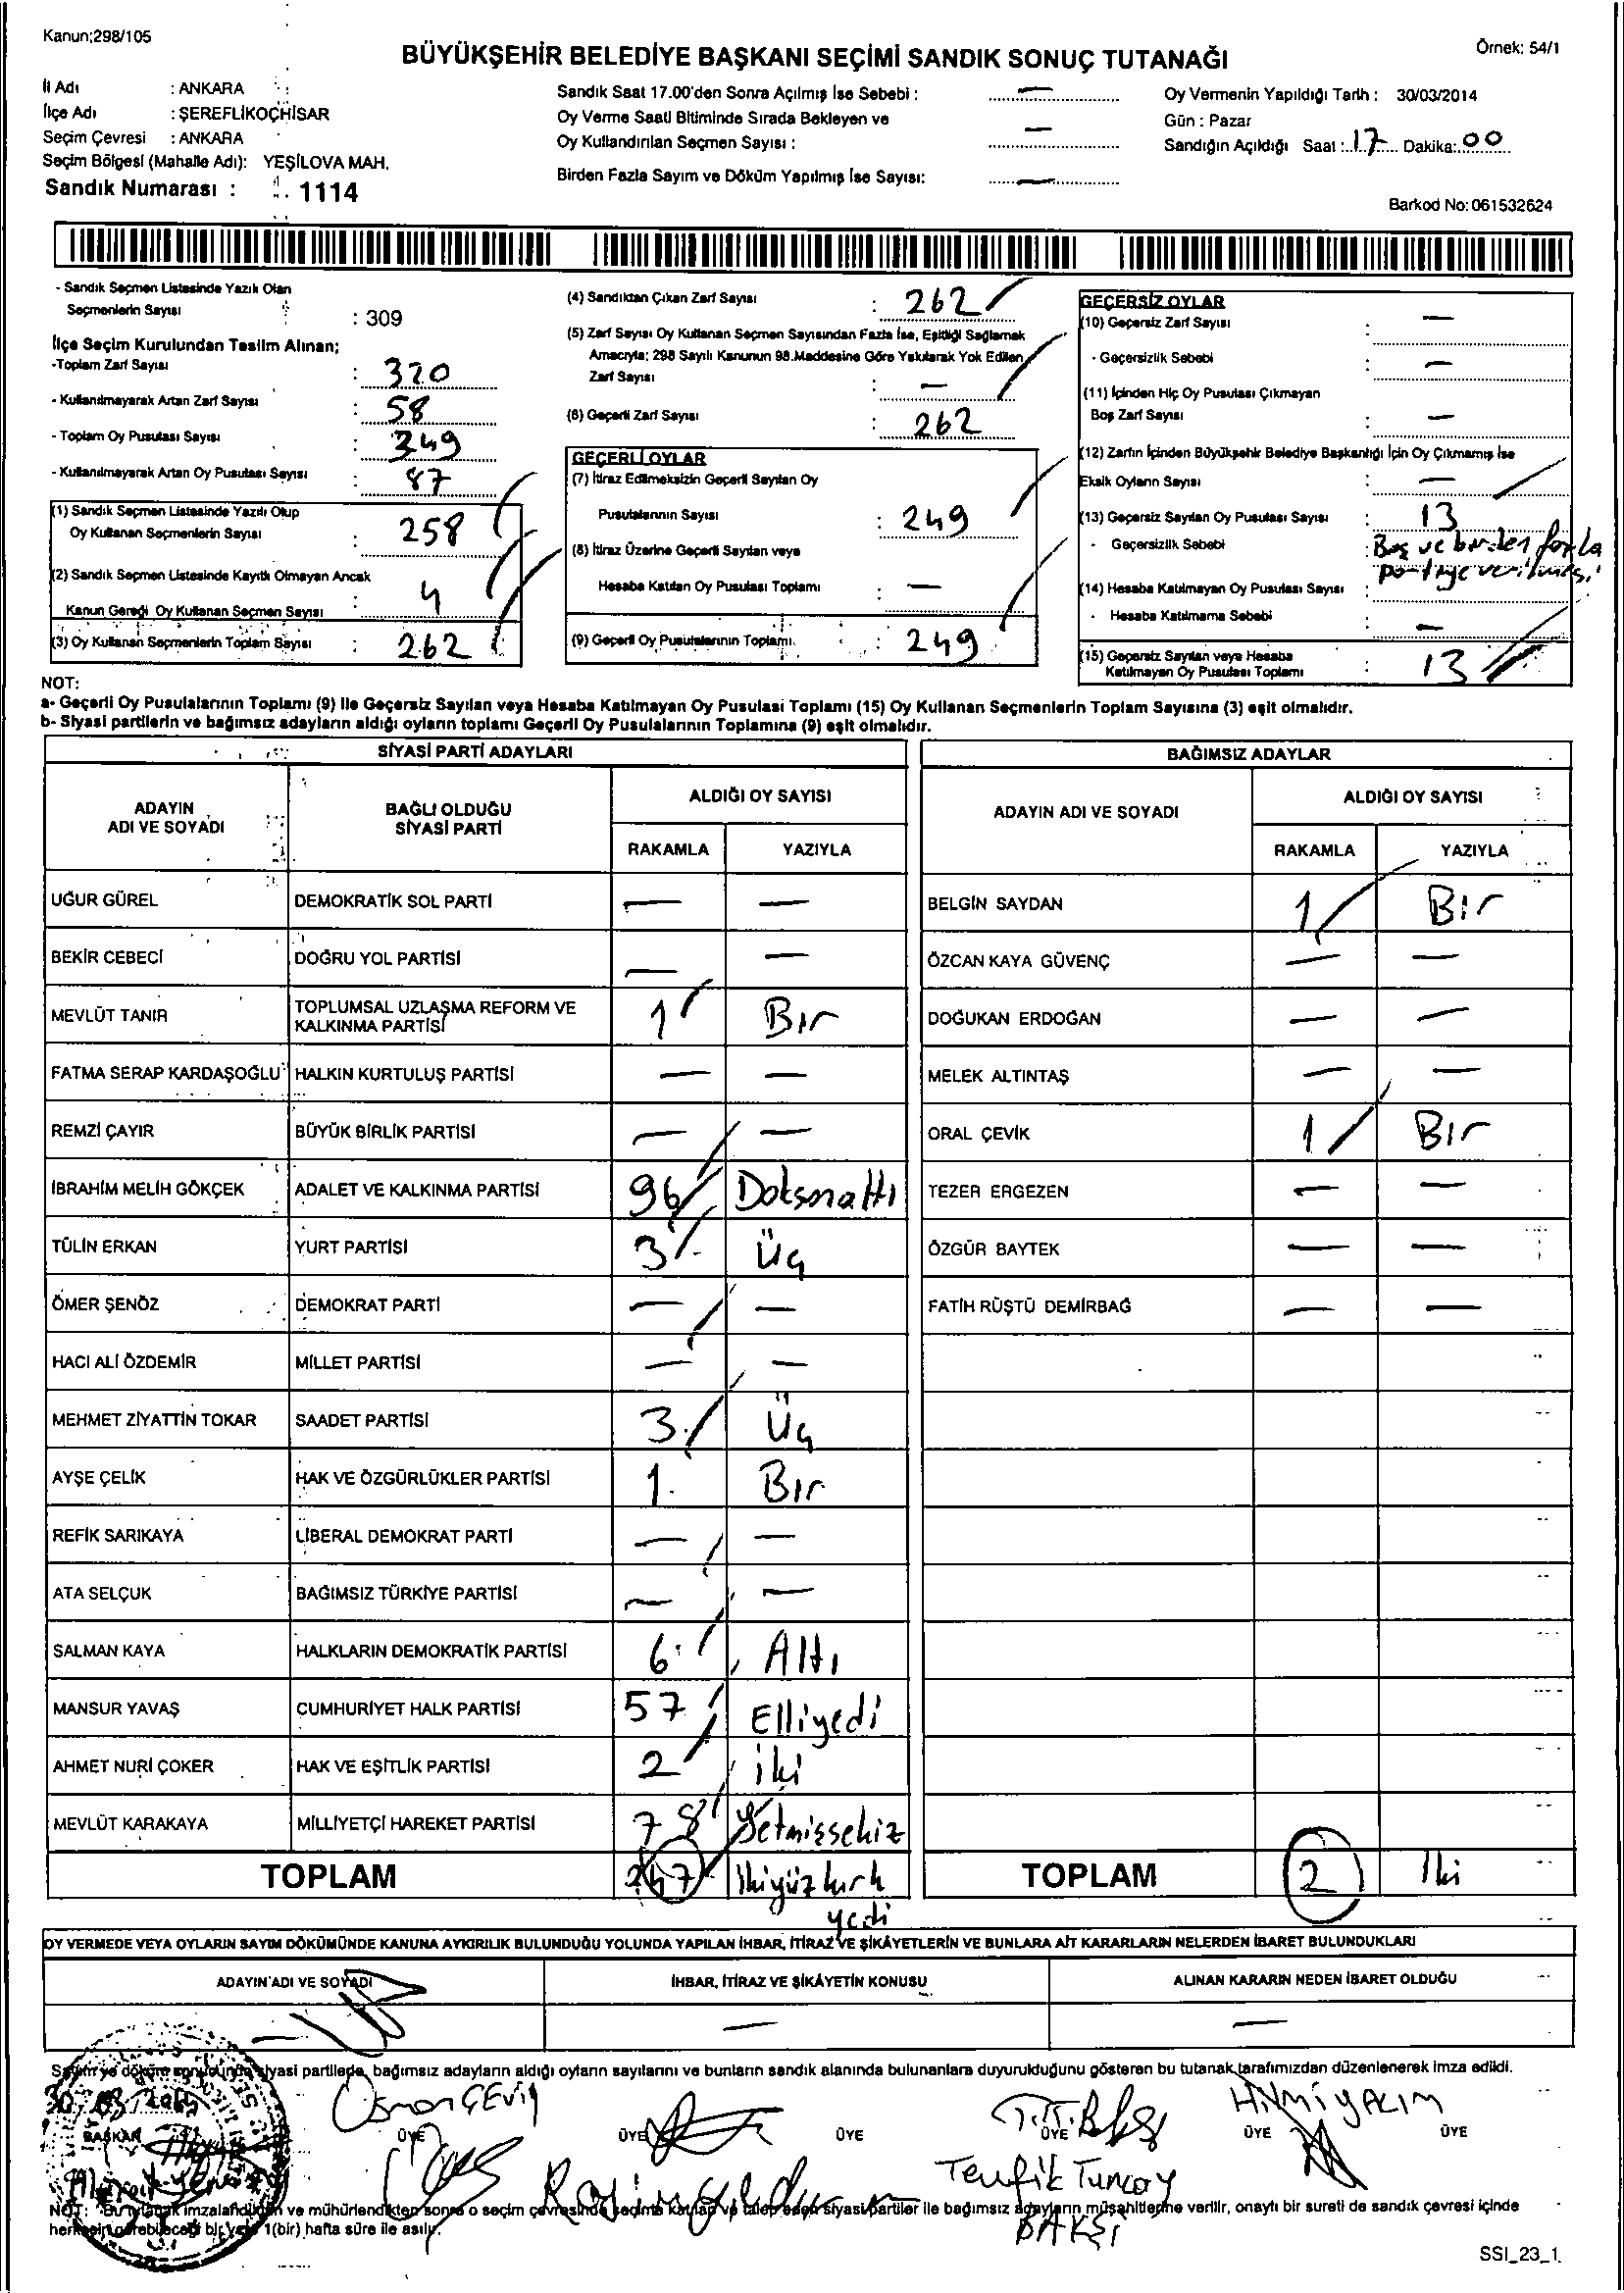 Kanun;298/105
Örnek: 54/1
BÜYÜKŞEHİR BELEDİYE BAŞKANI SEÇİMİ SANDIK SONUÇ TUTANAĞI
İl Adı : ANKARA
İlçe Adı : ŞEREFLİKOÇHİSAR
Seçim Çevresi : ANKARA
Seçim Bölgesi (Mahalle Adı): YEŞİLOVA MAH.
Sandık Numarası : 1114
Sandık Saat 17.00'den Sonra Açılmış İse Sebebi : —
Oy Verme Saati Bitiminde Sırada Bekleyen ve
Oy Kullandırılan Seçmen Sayısı : —
Birden Fazla Sayım ve Döküm Yapılmış İse Sayısı: —
Oy Vermenin Yapıldığı Tarih : 30/03/2014
Gün : Pazar
Sandığın Açıldığı Saat : 17 Dakika: 00
Barkod No: 061532624
- Sandık Seçmen Listesinde Yazılı Olan
Seçmenlerin Sayısı : 309
İlçe Seçim Kurulundan Teslim Alınan;
-Toplam Zarf Sayısı : 320
- Kullanılmayarak Artan Zarf Sayısı : 58
- Toplam Oy Pusulası Sayısı : 349
- Kullanılmayarak Artan Oy Pusulası Sayısı : 87
(1) Sandık Seçmen Listesinde Yazılı Olup
Oy Kullanan Seçmenlerin Sayısı : 258
(2) Sandık Seçmen Listesinde Kayıtlı Olmayan Ancak
Kanun Gereği Oy Kullanan Seçmen Sayısı : 4
(3) Oy Kullanan Seçmenlerin Toplam Sayısı : 262
(4) Sandıktan Çıkan Zarf Sayısı : 262
(5) Zarf Sayısı Oy Kullanan Seçmen Sayısından Fazla İse, Eşitliği Sağlamak
Amacıyla; 298 Sayılı Kanunun 98.Maddesine Göre Yakılarak Yok Edilen
Zarf Sayısı : —
(6) Geçerli Zarf Sayısı : 262
GEÇERLİ OYLAR
(7) İtiraz Edilmeksizin Geçerli Sayılan Oy
Pusulalarının Sayısı : 249
(8) İtiraz Üzerine Geçerli Sayılan veya
Hesaba Katılan Oy Pusulası Toplamı : —
(9) Geçerli Oy Pusulalarının Toplamı. : 249
GEÇERSİZ OYLAR
(10) Geçersiz Zarf Sayısı : —
- Geçersizlik Sebebi : —
(11) İçinden Hiç Oy Pusulası Çıkmayan
Boş Zarf Sayısı : —
(12) Zarfın İçinden Büyükşehir Belediye Başkanlığı İçin Oy Çıkmamış İse
Eksik Oyların Sayısı : —
(13) Geçersiz Sayılan Oy Pusulası Sayısı : 13
- Geçersizlik Sebebi : Boş ve birden fazla
partiye verilmesi
(14) Hesaba Katılmayan Oy Pusulası Sayısı :
- Hesaba Katılmama Sebebi : —
(15) Geçersiz Sayılan veya Hesaba
Katılmayan Oy Pusulası Toplamı : 13
NOT:
a- Geçerli Oy Pusulalarının Toplamı (9) İle Geçersiz Sayılan veya Hesaba Katılmayan Oy Pusulası Toplamı (15) Oy Kullanan Seçmenlerin Toplam Sayısına (3) eşit olmalıdır.
b- Siyasi partilerin ve bağımsız adayların aldığı oyların toplamı Geçerli Oy Pusulalarının Toplamına (9) eşit olmalıdır.
SİYASİ PARTİ ADAYLARI
ADAYIN ADI VE SOYADI BAĞLI OLDUĞU SİYASİ PARTİ ALDIĞI OY SAYISI
RAKAMLA YAZIYLA
UĞUR GÜREL DEMOKRATİK SOL PARTİ — —
BEKİR CEBECİ DOĞRU YOL PARTİSİ — —
MEVLÜT TANIR TOPLUMSAL UZLAŞMA REFORM VE KALKINMA PARTİSİ 1 Bir
FATMA SERAP KARDAŞOĞLU HALKIN KURTULUŞ PARTİSİ — —
REMZİ ÇAYIR BÜYÜK BİRLİK PARTİSİ — —
İBRAHİM MELİH GÖKÇEK ADALET VE KALKINMA PARTİSİ 96 Doksanaltı
TÜLİN ERKAN YURT PARTİSİ 3 Üç
ÖMER ŞENÖZ DEMOKRAT PARTİ — —
HACI ALİ ÖZDEMİR MİLLET PARTİSİ — —
MEHMET ZİYATTİN TOKAR SAADET PARTİSİ 3 Üç
AYŞE ÇELİK HAK VE ÖZGÜRLÜKLER PARTİSİ 1 Bir
REFİK SARIKAYA LİBERAL DEMOKRAT PARTİ — —
ATA SELÇUK BAĞIMSIZ TÜRKİYE PARTİSİ — —
SALMAN KAYA HALKLARIN DEMOKRATİK PARTİSİ 6 Altı
MANSUR YAVAŞ CUMHURİYET HALK PARTİSİ 57 Elliyedi
AHMET NURİ ÇOKER HAK VE EŞİTLİK PARTİSİ 2 iki
MEVLÜT KARAKAYA MİLLİYETÇİ HAREKET PARTİSİ 78 Yetmişsekiz
TOPLAM 247 İkiyüz kırk
yedi
BAĞIMSIZ ADAYLAR
ADAYIN ADI VE SOYADI ALDIĞI OY SAYISI
RAKAMLA YAZIYLA
BELGİN SAYDAN 1 Bir
ÖZCAN KAYA GÜVENÇ — —
DOĞUKAN ERDOĞAN — —
MELEK ALTINTAŞ — —
ORAL ÇEVİK 1 Bir
TEZER ERGEZEN — —
ÖZGÜR BAYTEK — —
FATİH RÜŞTÜ DEMİRBAĞ — —
TOPLAM 2 İki
OY VERMEDE VEYA OYLARIN SAYIM DÖKÜMÜNDE KANUNA AYKIRILIK BULUNDUĞU YOLUNDA YAPILAN İHBAR, İTİRAZ VE ŞİKÂYETLERİN VE BUNLARA AİT KARARLARIN NELERDEN İBARET BULUNDUKLARI
ADAYIN ADI VE SOYADI İHBAR, İTİRAZ VE ŞİKÂYETİN KONUSU ALINAN KARARIN NEDEN İBARET OLDUĞU
— — —
Sayım ve döküm sonucunda siyasi partilerle, bağımsız adayların aldığı oyların sayılarını ve bunların sandık alanında bulunanlara duyurulduğunu gösteren bu tutanak tarafımızdan düzenlenerek imza edildi.
Osman ÇEVİŞ T.T.Bakşi Hilmi YALIM
BAŞKAN ÜYE ÜYE ÜYE ÜYE ÜYE ÜYE
Tevfik Tuncay
BAKŞİ
NOT: Bu tutanak imzalandıktan ve mühürlendikten sonra o seçim çevresinde seçime katılan ve talep eden siyasi partiler ile bağımsız adayların müşahitlerine verilir, onaylı bir sureti de sandık çevresi içinde
herkesin görebileceği bir yere 1(bir) hafta süre ile asılır.
SSI_23_1